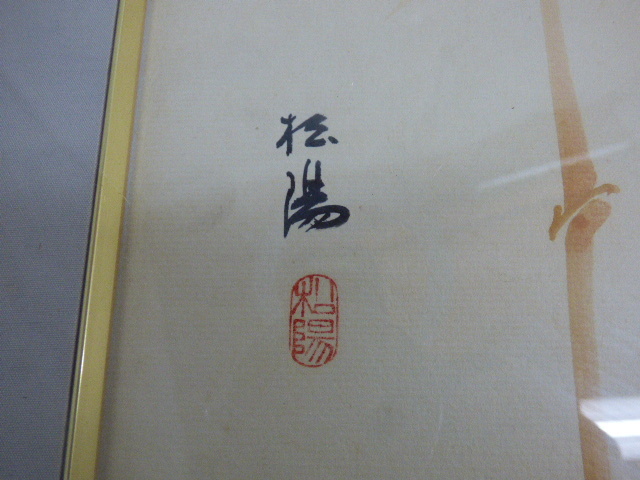 松
陽
松
陽